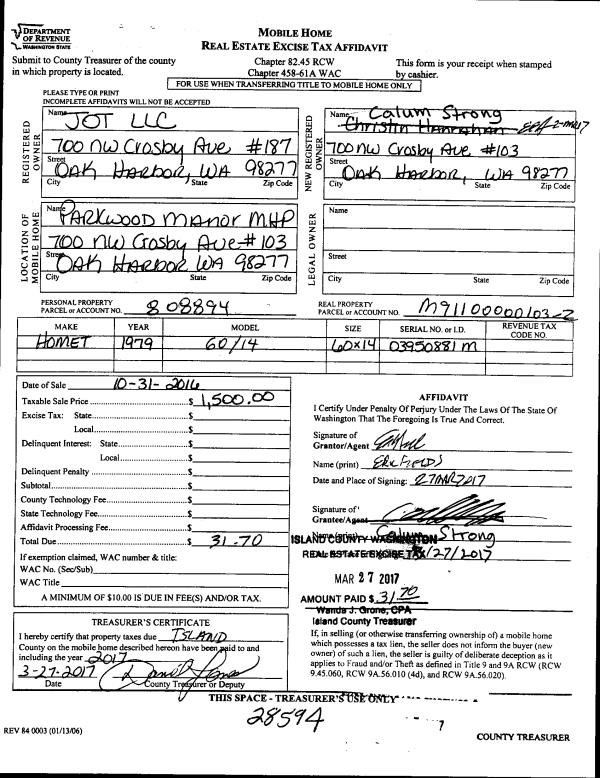 DEPARTMENT
OF REVENUE
WASHINGTON STATE
MOBILE HOME
REAL ESTATE EXCISE TAX AFFIDAVIT
Submit to County Treasurer of the county
in which property is located.
Chapter 82.45 RCW
Chapter 458-61A WAC
This form is your receipt when stamped
by cashier.
FOR USE WHEN TRANSFERRING TITLE TO MOBILE HOME ONLY
PLEASE TYPE OR PRINT
INCOMPLETE AFFIDAVITS WILL NOT BE ACCEPTED
REGISTERED OWNER
Name JOT LLC
700 NW Crosby Ave #187
Street
OAK HARBOR, WA 98277
City State Zip Code
NEW REGISTERED OWNER
Name Calum Strong
Christin Hanrahan
700 NW Crosby Ave #103
Street
OAK HARBOR, WA 98277
City State Zip Code
LOCATION OF MOBILE HOME
PARKWOOD MANOR MHP
700 NW Crosby Ave # 103
Street
OAK HARBOR WA 98277
City State Zip Code
LEGAL OWNER
Name
Street
City State Zip Code
PERSONAL PROPERTY
PARCEL or ACCOUNT NO. 808894
REAL PROPERTY
PARCEL or ACCOUNT NO. M91100000103-2
MAKE YEAR MODEL SIZE SERIAL NO. or I.D. REVENUE TAX CODE NO.
HOMET 1979 60/14 60x14 03950881M
Date of Sale 10-31-2016
Taxable Sale Price $ 1,500.00
Excise Tax: State $
Local $
Delinquent Interest: State $
Local $
Delinquent Penalty $
Subtotal $
County Technology Fee $
State Technology Fee $
Affidavit Processing Fee $
Total Due $ 31.70
If exemption claimed, WAC number & title:
WAC No. (Sec/Sub)
WAC Title
A MINIMUM OF $10.00 IS DUE IN FEE(S) AND/OR TAX.
AFFIDAVIT
I Certify Under Penalty Of Perjury Under The Laws Of The State Of
Washington That The Foregoing Is True And Correct.
Signature of
Grantor/Agent
Name (print) ERIC FIELDS
Date and Place of Signing: 27MAR2017
Signature of
Grantee/Agent
Name (print) Calum Strong
ISLAND COUNTY WASHINGTON
REAL ESTATE EXCISE TAX
/27/2017
MAR 27 2017
AMOUNT PAID $ 31.70
Wanda J. Grone, CPA
Island County Treasurer
If, in selling (or otherwise transferring ownership) of a mobile home
which possesses a tax lien, the seller does not inform the buyer (new
owner) of such a lien, the seller is guilty of deliberate deception as it
applies to Fraud and/or Theft as defined in Title 9 and 9A RCW (RCW
9.45.060, RCW 9A.56.010 (4d), and RCW 9A.56.020).
TREASURER'S CERTIFICATE
I hereby certify that property taxes due ISLAND
County on the mobile home described hereon have been paid to and
including the year 2017
3-27-2017
Date County Treasurer or Deputy
THIS SPACE - TREASURER'S USE ONLY
28594
REV 84 0003 (01/13/06)
COUNTY TREASURER